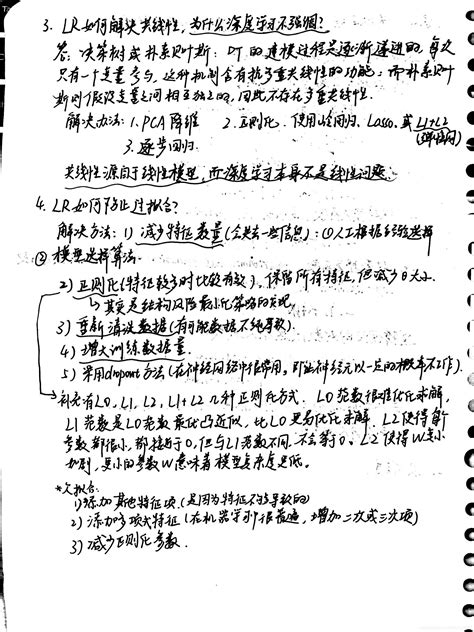 3. LR如何解决共线性,为什么深度学习不强调?
答:决策树或朴素贝叶斯:DT的建模过程是逐渐递进的,每次
只有一个变量参与,这种机制含有抗多重共线性的功能;而朴素贝叶
斯则假设变量之间相互独立的,因此不存在多重共线性。
解决办法:1.PCA降维 2.正则化,使用岭回归、Lasso、或L1+L2
(弹性网)
3.逐步回归.
共线性源自于线性模型,而深度学习本身不是线性问题.
4. LR如何防止过拟合?
解决方法:1) 减少特征数量(会失去一些信息):①人工根据经验选择
② 模型选择算法.
2) 正则化(特征较多时比较有效),保留所有特征,但减少θ大小.
↳其实是结构风险最小化策略的实现
3) 重新清洗数据(有可能数据不纯导致).
4) 增大训练数据量.
5) 采用dropout方法(在神经网络中很常用,即让神经元以一定的概率不工作).
补充有L0、L1、L2、L1+L2几种正则化方式. L0范数很难优化求解,
L1范数是L0范数最优凸近似,比L0更易优化求解. L2使得每个
参数都很小,都接近于0,但与L1范数不同,不会等于0。L2使得W变小
,更小的参数W意味着模型复杂度更低。
*欠拟合:
1)添加其他特征项(是因为特征不够导致的)
2)添加多项式特征(在机器学习中很普遍,增加二次或三次项)
3)减少正则化参数.